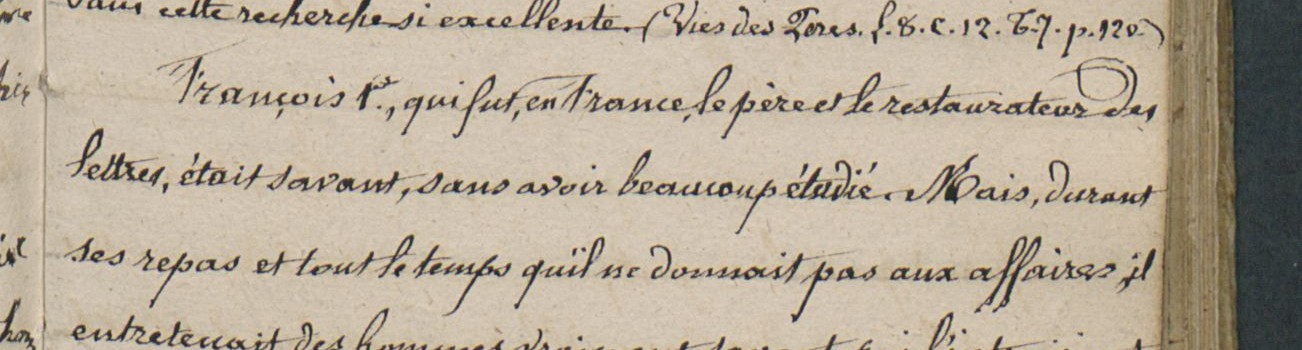 cette recherche si excellente. (Vies des Pères. l. 8. c. 12. t. 7. p. 120.)
François 1er., qui fut, en France, le père et le restaurateur des
lettres, était savant, sans avoir beaucoup étudié. Mais, durant
ses repas et tout le temps qu'il ne donnait pas aux affaires, il
entretenait des hommes vraiment